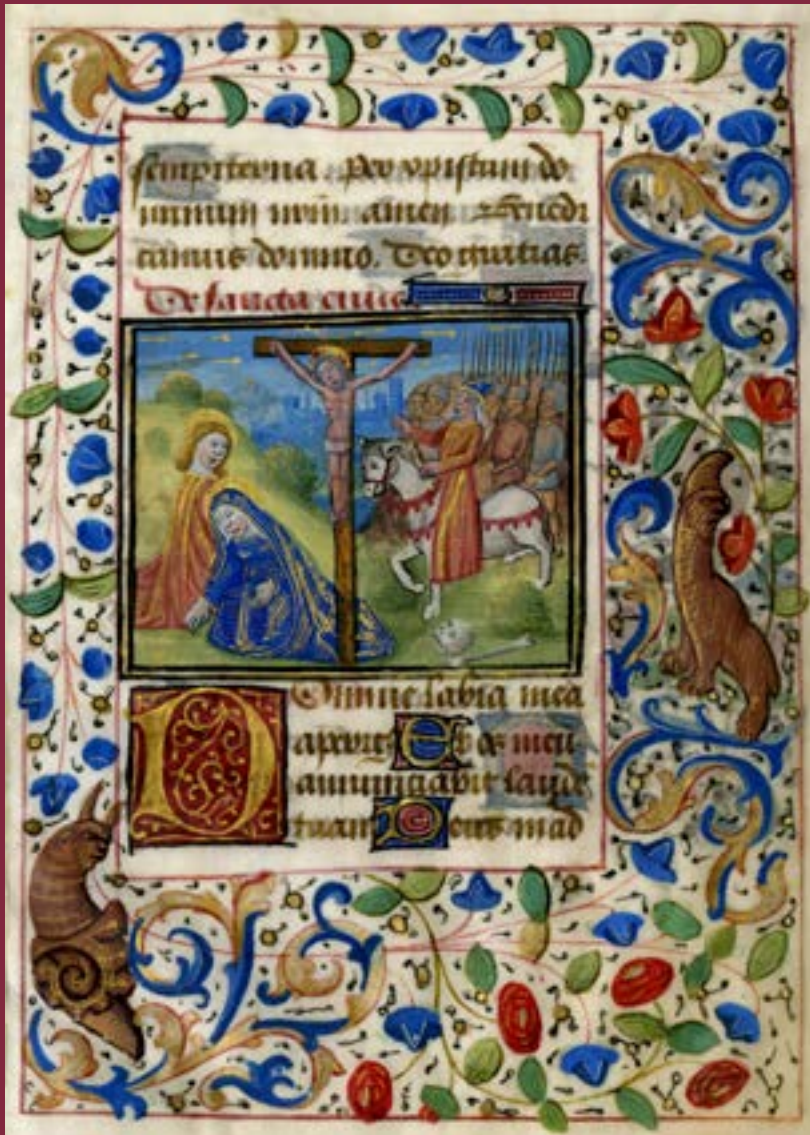 sempiterna. Per xpistum do
minum nrm amen Benedi
camus domino. Deo gratias.
De sancta cruce
Domine labia mea
aperies Et os meu
annunciabit laude
tuam Deus in ad